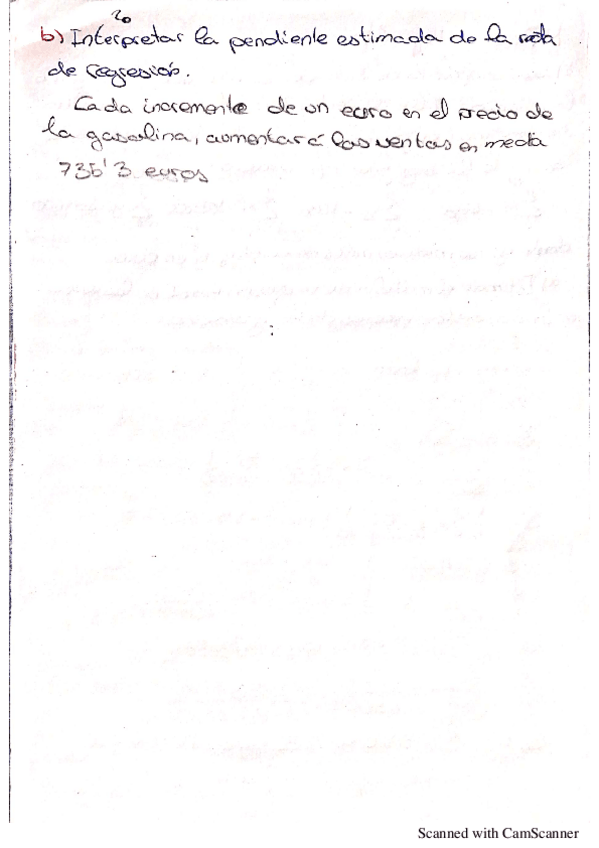 20
b) Interpretar la pendiente estimada de la recta
de regresión.
Cada incremente de un euro en el precio de
la gasolina, aumentará las ventas en media
735'3 euros
Scanned with CamScanner